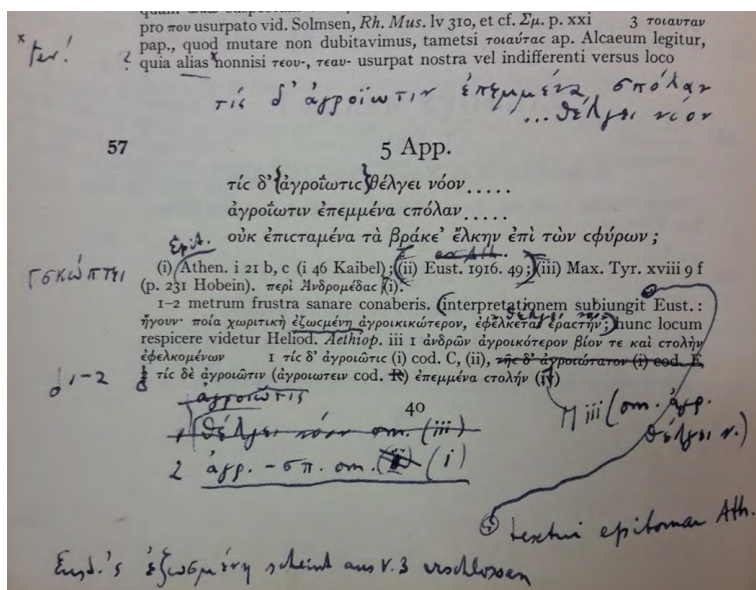 pro που usurpato vid. Solmsen, Rh. Mus. lv 310, et cf. Σμ. p. xxi 3 τοιαυταν
pap., quod mutare non dubitavimus, tametsi τοιαύτας ap. Alcaeum legitur,
quia alias nonnisi τεου-, τεαυ- usurpat nostra vel indifferenti versus loco
τίς δ' ἀγροΐωτιν ἐπεμμένα σπόλαν
...θέλγει νόον
57 5 App.
τίϲ δ' {ἀγροΐωτιϲ} θέλγει νόον.....
ἀγροΐωτιν ἐπεμμένα ϲπόλαν.....
οὐκ ἐπιϲταμένα τὰ βράκε' ἔλκην ἐπὶ τὼν ϲφύρων;
Epit. ex Ath.
(i) Athen. i 21 b, c (i 46 Kaibel); (ii) Eust. 1916. 49; (iii) Max. Tyr. xviii 9 f
σκώπτει
(p. 231 Hobein). περὶ Ἀνδρομέδας (i).
1–2 metrum frustra sanare conaberis. (interpretationem subiungit Eust.:
θέλγει
ἤγουν· ποία χωριτικὴ ἐζωϲμένη ἀγροικικώτερον, ἐφέλκεται ἐραϲτήν; hunc locum
respicere videtur Heliod. Aethiop. iii 1 ἀνδρῶν ἀγροικότερον βίον τε καὶ στολὴν
ἐφελκομένων 1 τίς δ' ἀγροιῶτις (i) cod. C, (ii), τῆς δ' ἀγροιώτατον (i) cod. E,
1-2
τίς δὲ ἀγροιῶτιν (ἀγροιωτειν cod. R) ἐπεμμένα στολήν (iv)
ἀγροιῶτις
40
iii (om. ἀγρ.
θέλγει ν.)
1 θέλγει νόον om. (iii)
2 ἀγρ. – σπ. om. (ii) (i)
textui epitomae Ath.
Eust.'s ἐζωσμένη scheint aus V. 3 erschlossen